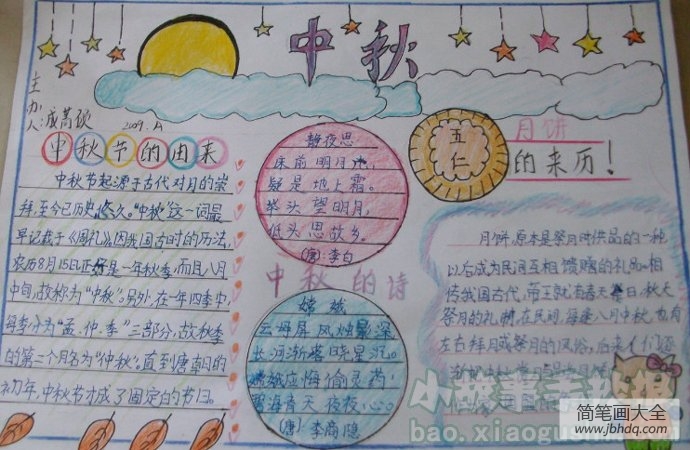 中秋
主办人:成
2009.
中秋节的由来
中秋节起源于古代对月的崇
拜,至今已历史悠久。“中秋”这一词最
早记载于《周礼》,因我国古时的历法,
农历8月15日正好是一年秋季,而且八月
中旬,故称为“中秋”。另外,在一年四季中,
每季分为“孟、仲、季”三部分,故秋季
的第二个月名为“仲秋”。直到唐朝
初年,中秋节才成了固定的节日。
静夜思
床前明月光,
疑是地上霜。
举头望明月,
低头思故乡。
(唐):李白
中秋的诗
嫦娥
云母屏风烛影深,
长河渐落晓星沉。
嫦娥应悔偷灵药,
碧海青天夜夜心。
(唐):李商隐
五仁
月饼
的来历!
月饼,原本是祭月时供品的一种
以后成为民间互相馈赠的礼品。相
传我国古代,帝王就有春天祭日,秋天
祭月的礼制,在民间,每逢八月中秋,也有
左右拜月或祭月的风俗,后来人们还
小故事手抄报
bao.xiaogushi
简笔画大全
www.jbhdq.com